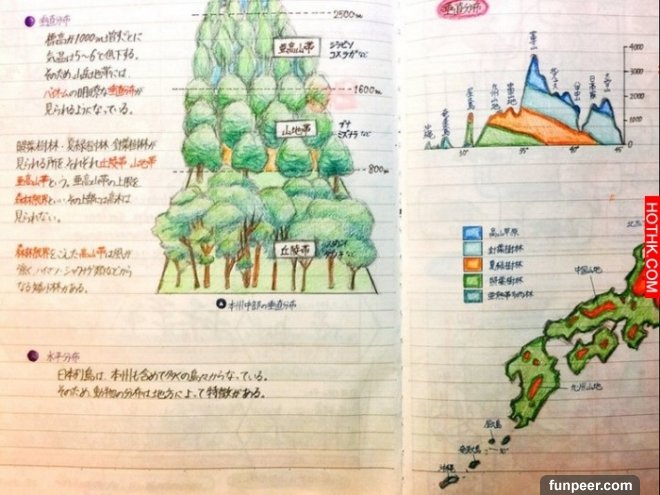 垂直分布
標高が1000m増すごとに
気温は5〜6℃低下する。
そのため、山岳地帯には、
バイオームの明瞭な垂直分布が
見られるようになっている。
照葉樹林・夏緑樹林・針葉樹林が
見られる所をそれぞれ丘陵帯、山地帯
亜高山帯という。亜高山帯の上限を
森林限界といい、その上部には高木は
見られない。
森林限界をこえた高山帯は風が
強く、ハイマツ
林がある。
2500m
亜高山帯
シラビソ
コメツガなど
1600m
山地帯
ブナ
ミズナラなど
800m
丘陵帯
本州中部の垂直分布
水平分布
日本列島は、本州も含めて多くの島々からなっている。
そのため、動物の分布は地方によって特徴がある。
垂直分布
4000
3000
2000
1000
0
沖縄
屋久島
九州山地
30°
35°
40°
45°
高山草原
針葉樹林
夏緑樹林
照葉樹林
亜熱帯多雨林
中国山地
九州山地
屋久島
沖縄
HOTHK.COM
funpeer.com